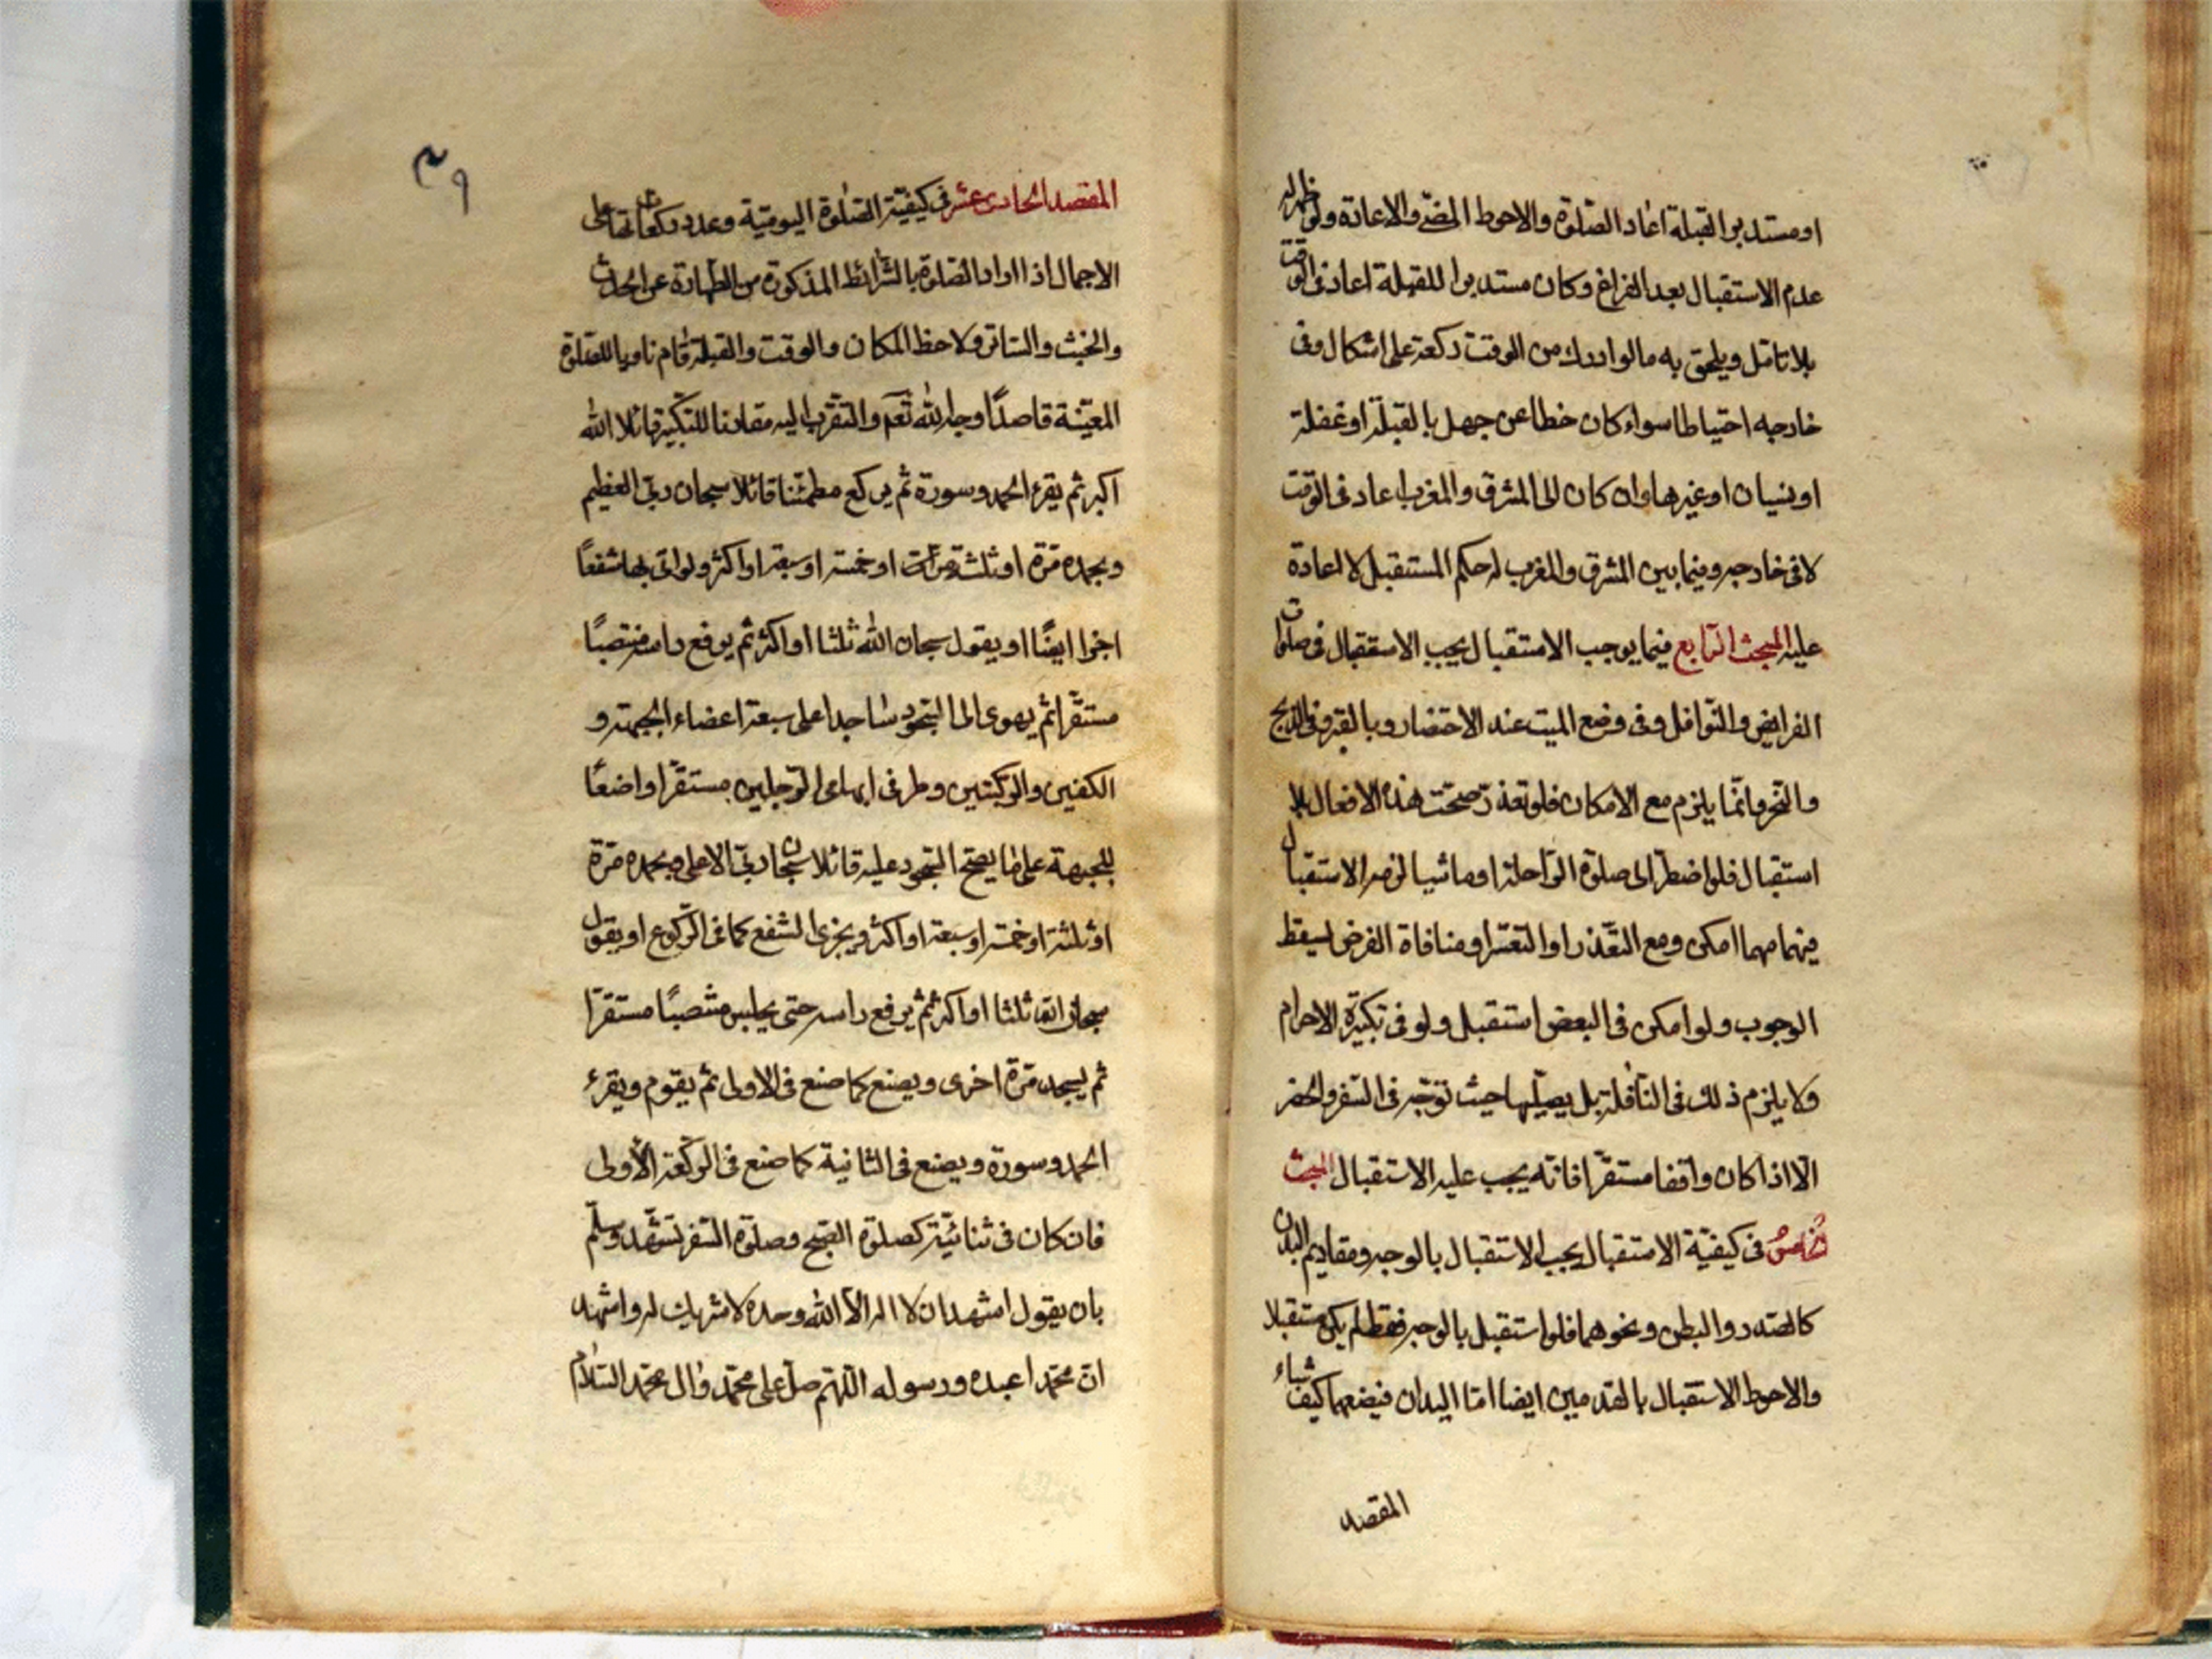 او مستدبر القبلة اعاد الصلوة والاحوط المضى والاعادة ولو ظهر له
عدم الاستقبال بعد الفراغ وكان مستدبرا للقبلة اعاد فى الوقت
بلا تامل ويلحق به ما لو ادرك من الوقت ركعة على اشكال وفى
خارجه احتياطا سواء كان خطا عن جهل بالقبلة او غفلة
او نسيان او غيرها وان كان الى المشرق والمغرب اعاد فى الوقت
لا فى خارجه وفيما بين المشرق والمغرب له حكم المستقبل لا اعادة
عليه المبحث الرابع فيما يوجب الاستقبال يجب الاستقبال فى صلوات
الفرايض والنوافل وفى وضع الميت عند الاحتضار وبالقبر وفى الذبح
والنحر وانما يلزم مع الامكان فلو تعذر صحت هذه الافعال بلا
استقبال فلو اضطر الى صلوة الراحلة او ماشيا لزمه الاستقبال
فيهما مهما امكن ومع التعذر او التعسر او منافاة الفرض يسقط
الوجوب ولو امكن فى البعض استقبل ولو فى تكبيرة الاحرام
ولا يلزم ذلك فى النافلة بل يصليها حيث توجه فى السفر والحضر
الا اذا كان واقفا مستقرا فانه يجب عليه الاستقبال المبحث
الخامس فى كيفية الاستقبال يجب الاستقبال بالوجه ومقاديم البدن
كالصدر والبطن ونحوهما فلو استقبل بالوجه فقط لم يكن مستقبلا
والاحوط الاستقبال بالقدمين ايضا اما اليدان فيضعهما كيف شاء
المقصد
٣٩
المقصد الحادى عشر فى كيفية الصلوة اليومية وعدد ركعاتها على
الاجمال اذا اراد الصلوة بالشرائط المذكورة من الطهارة عن الحدث
والخبث والساتر ولاحظ المكان والوقت والقبلة قام ناويا للصلوة
المعينة قاصدا وجه الله تعم والتقرب اليه مقارنا للتكبير قائلا الله
اكبر ثم يقرء الحمد وسورة ثم يركع مطمئنا قائلا سبحان ربى العظيم
وبحمده مرة او ثلثة مرات او خمسة او سبعة او اكثر ولو اتى بها شفعا
اجزا ايضا او يقول سبحان الله ثلثا او اكثر ثم يرفع راسه منتصبا
مستقرا ثم يهوى الى السجود ساجدا على سبعة اعضاء الجبهة و
الكفين والركبتين وطرفى ابهامى الرجلين مستقرا واضعا
للجبهة على ما يصح السجود عليه قائلا سبحان ربى الاعلى وبحمده مرة
او ثلثة او خمسة او سبعة او اكثر ويجزى الشفع كما فى الركوع او يقول
سبحان الله ثلثا او اكثر ثم يرفع راسه حتى يجلس منتصبا مستقرا
ثم يسجد مرة اخرى ويصنع كما صنع فى الاولى ثم يقوم ويقرء
الحمد وسورة ويصنع فى الثانية كما صنع فى الركعة الاولى
فان كان فى ثنائية كصلوة الصبح وصلوة السفر تشهد وسلم
بان يقول اشهد ان لا اله الا الله وحده لا شريك له واشهد
ان محمدا عبده ورسوله اللهم صل على محمد وال محمد السلام